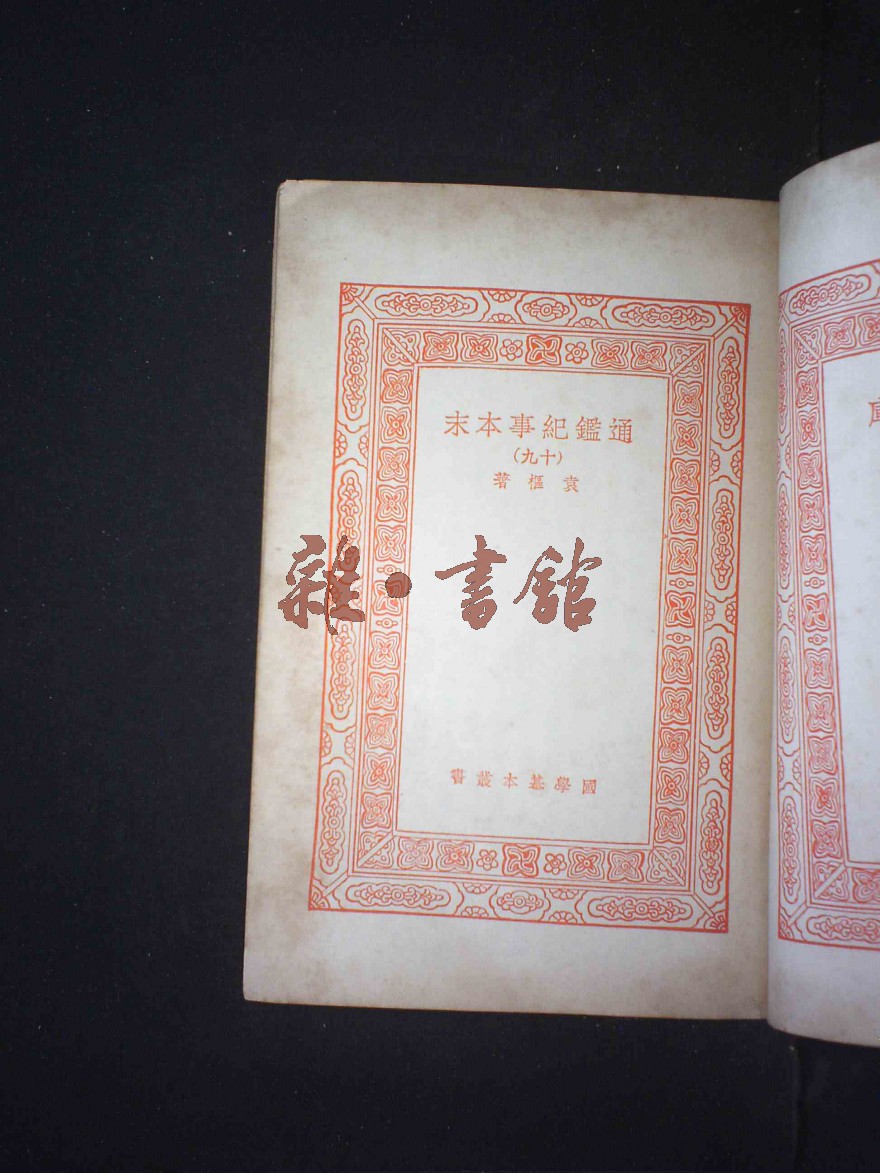 通鑑紀事本末
(十九)
袁樞著
雜·書館
國學基本叢書